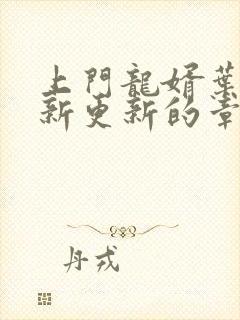 上門龍婿葉
新更新的章
丹戎